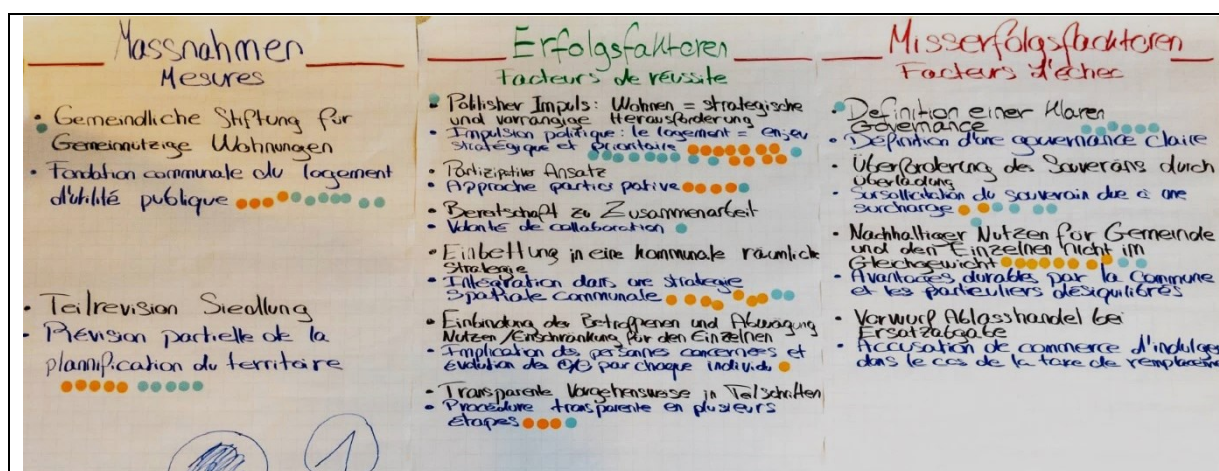 Massnahmen
Mesures
• Gemeindliche Stiftung für
Gemeinnützige Wohnungen
• Fondation communale du logement
d'utilité publique
• Teilrevision Siedlung
• Révision partielle de la
plannification du territoire
1
Erfolgsfaktoren
Facteurs de réussite
• Politisher Impuls: Wohnen = strategische
und vorrangige Herausforderung
• Impulsion politique: le logement = enjeu
stratégique et prioritaire
• Partizipativer Ansatz
• Approche participative
• Bereitschaft zu Zusammenarbeit
• Volonté de collaboration
• Einbettung in eine kommunale räumliche
Strategie
• Intégration dans une stratégie
Spatiale communale
• Einbindung der Betroffenen und Abwägung
Nutzen/Einschränkung für den Einzelnen
• Implication des personnes concernées et
évolution des par chaque individu
• Transparente Vorgehensweise in Teilschritten
• Procédure transparente en plusieurs
étapes
Misserfolgsfacktoren
Facteurs d'échec
• Definition einer klaren
Governance
• Définition d'une gouvernance claire
• Überforderung des Souveräns durch
Überladung
• Sursollicitation du souverain due à une
surcharge
• Nachhaltiger Nutzen für Gemeinde
und den Einzelnen nicht im
Gleichgewicht
• Avantages durables par la commune
et les particuliers désiquilibrés
• Vorwurf Ablasshandel bei
Ersatzabgabe
• Accusation de commerce d'indulge
dans le cas de la taxe de remplaceme